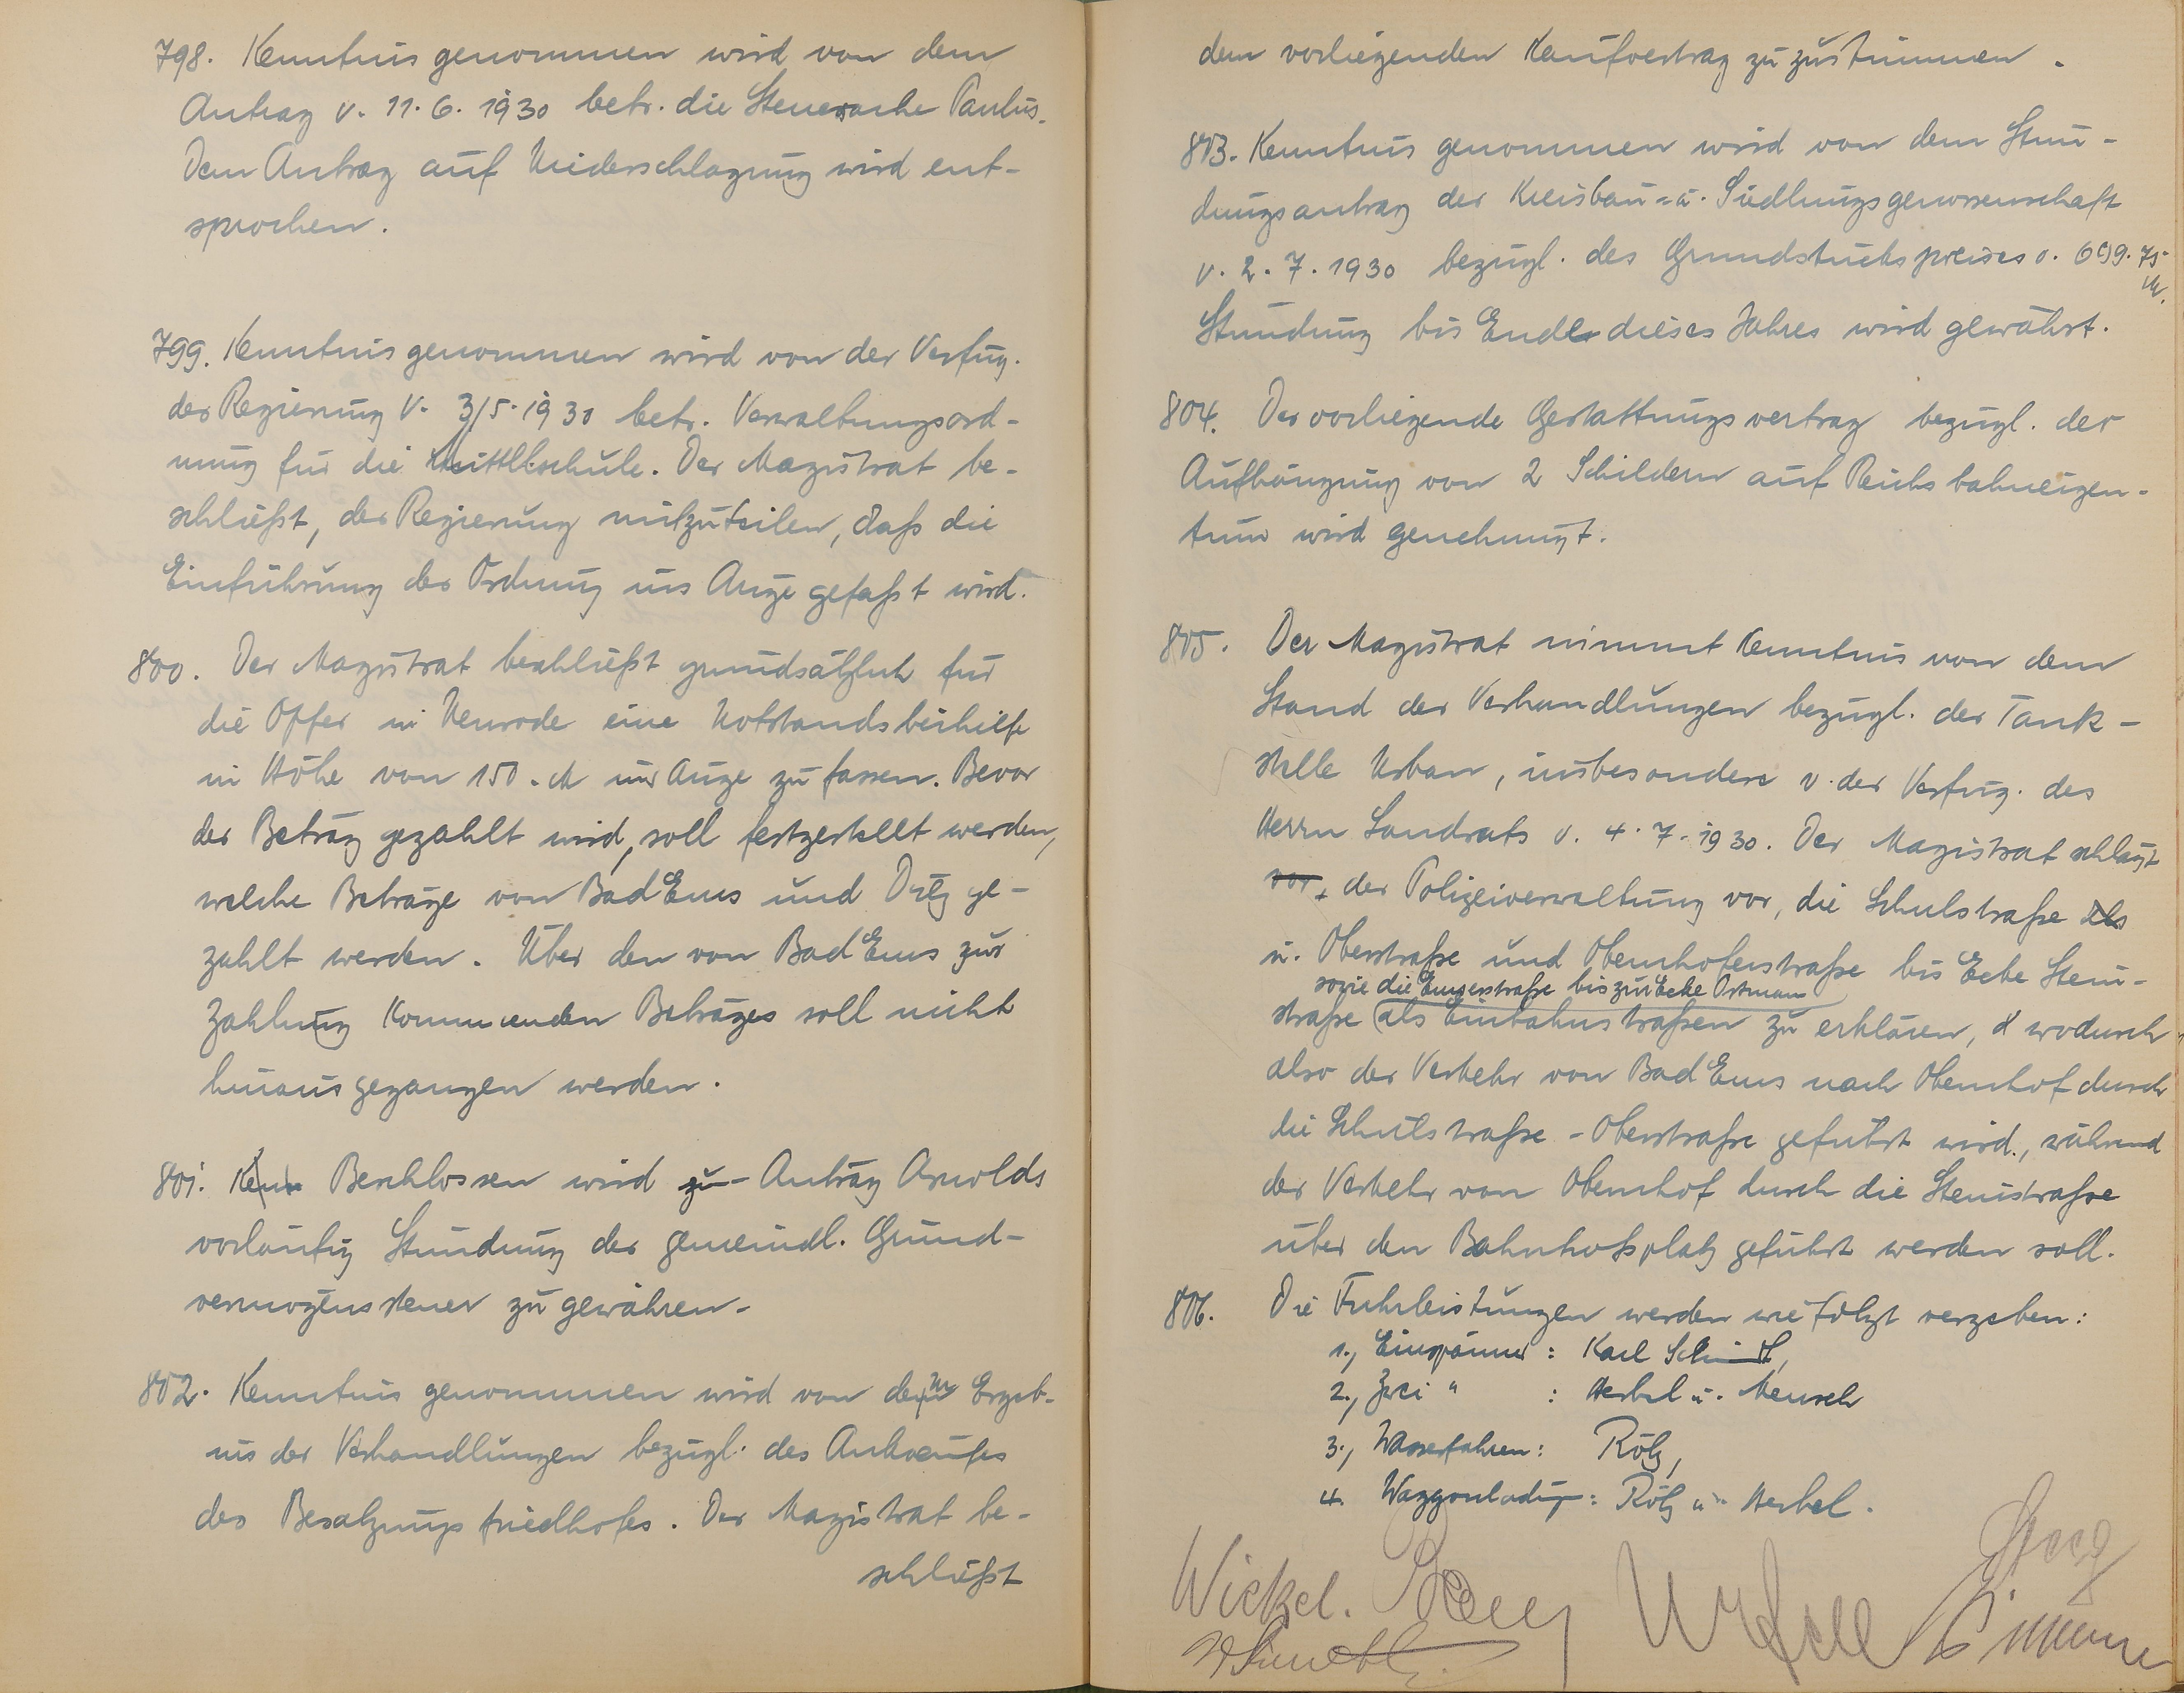 798. Kenntnis genommen wird von dem
Antrag v. 11.6.1930 betr. die Steuersache Paulus.
Dem Antrag auf Niederschlagung wird ent-
sprochen.
799. Kenntnis genommen wird von der Verfüg.
der Regierung v. 3/5.1930 betr. Verwaltungsord-
nung für die Mittelschule. Der Magistrat be-
schließt, der Regierung mitzuteilen, daß die
Einführung der Ordnung ins Auge gefaßt wird.
800. Der Magistrat beschließt grundsätzlich für
die Opfer in Neurode eine Notstandsbeihilfe
in Höhe von 150.M ins Auge zu fassen. Bevor
der Betrag gezahlt wird, soll festgestellt werden,
welche Beträge von Bad Ems und Diez ge-
zahlt werden. Über den von Bad Ems zur
Zahlung kommenden Betrages soll nicht
hinausgegangen werden.
801. Beschlossen wird zu Antrag Arnolds
vorläufig Stundung der gemeindl. Grund-
vermögenssteuer zu gewähren.
802. Kenntnis genommen wird von dem Ergeb-
nis der Verhandlungen bezügl. des Ankaufes
des Besatzungsfriedhofes. Der Magistrat be-
schließt
dem vorliegenden Kaufvertrag zuzustimmen.
803. Kenntnis genommen wird von dem Stun-
dungsantrag der Kreisbau- u. Siedlungsgenossenschaft
v. 2.7.1930 bezügl. des Grundstückspreises v. 609.75
M.
Stundung bis Ende dieses Jahres wird gewährt.
804. Der vorliegende Gestattungsvertrag bezügl. der
Aufhängung von 2 Schildern auf Reichsbahneigen-
tum wird genehmigt.
805. Der Magistrat nimmt Kenntnis von dem
Stand der Verhandlungen bezügl. der Tank-
stelle Urban, insbesondere v. der Verfüg. des
Herrn Landrats v. 4.7.1930. Der Magistrat schlägt
vor, der Polizeiverwaltung vor, die Schulstraße als
u. Oberstraße und Obernhoferstraße bis Ecke Stein-
sowie die Emserstraße bis zur Ecke Ortmann
straße als Einbahnstraßen zu erklären, wodurch
also der Verkehr von Bad Ems nach Obernhof durch
die Schulstraße - Oberstraße geführt wird, während
der Verkehr von Obernhof durch die Steinstraße
über den Bahnhofsplatz geführt werden soll.
806. Die Fuhrleistungen werden wie folgt vergeben:
1., Einspänner: Karl Schmidt,
2., Zwei " : Herbel u. Mensch
3., Wasserfahren: Rötz,
4. Waggonladung: Rötz u. Herbel.
Wickel.